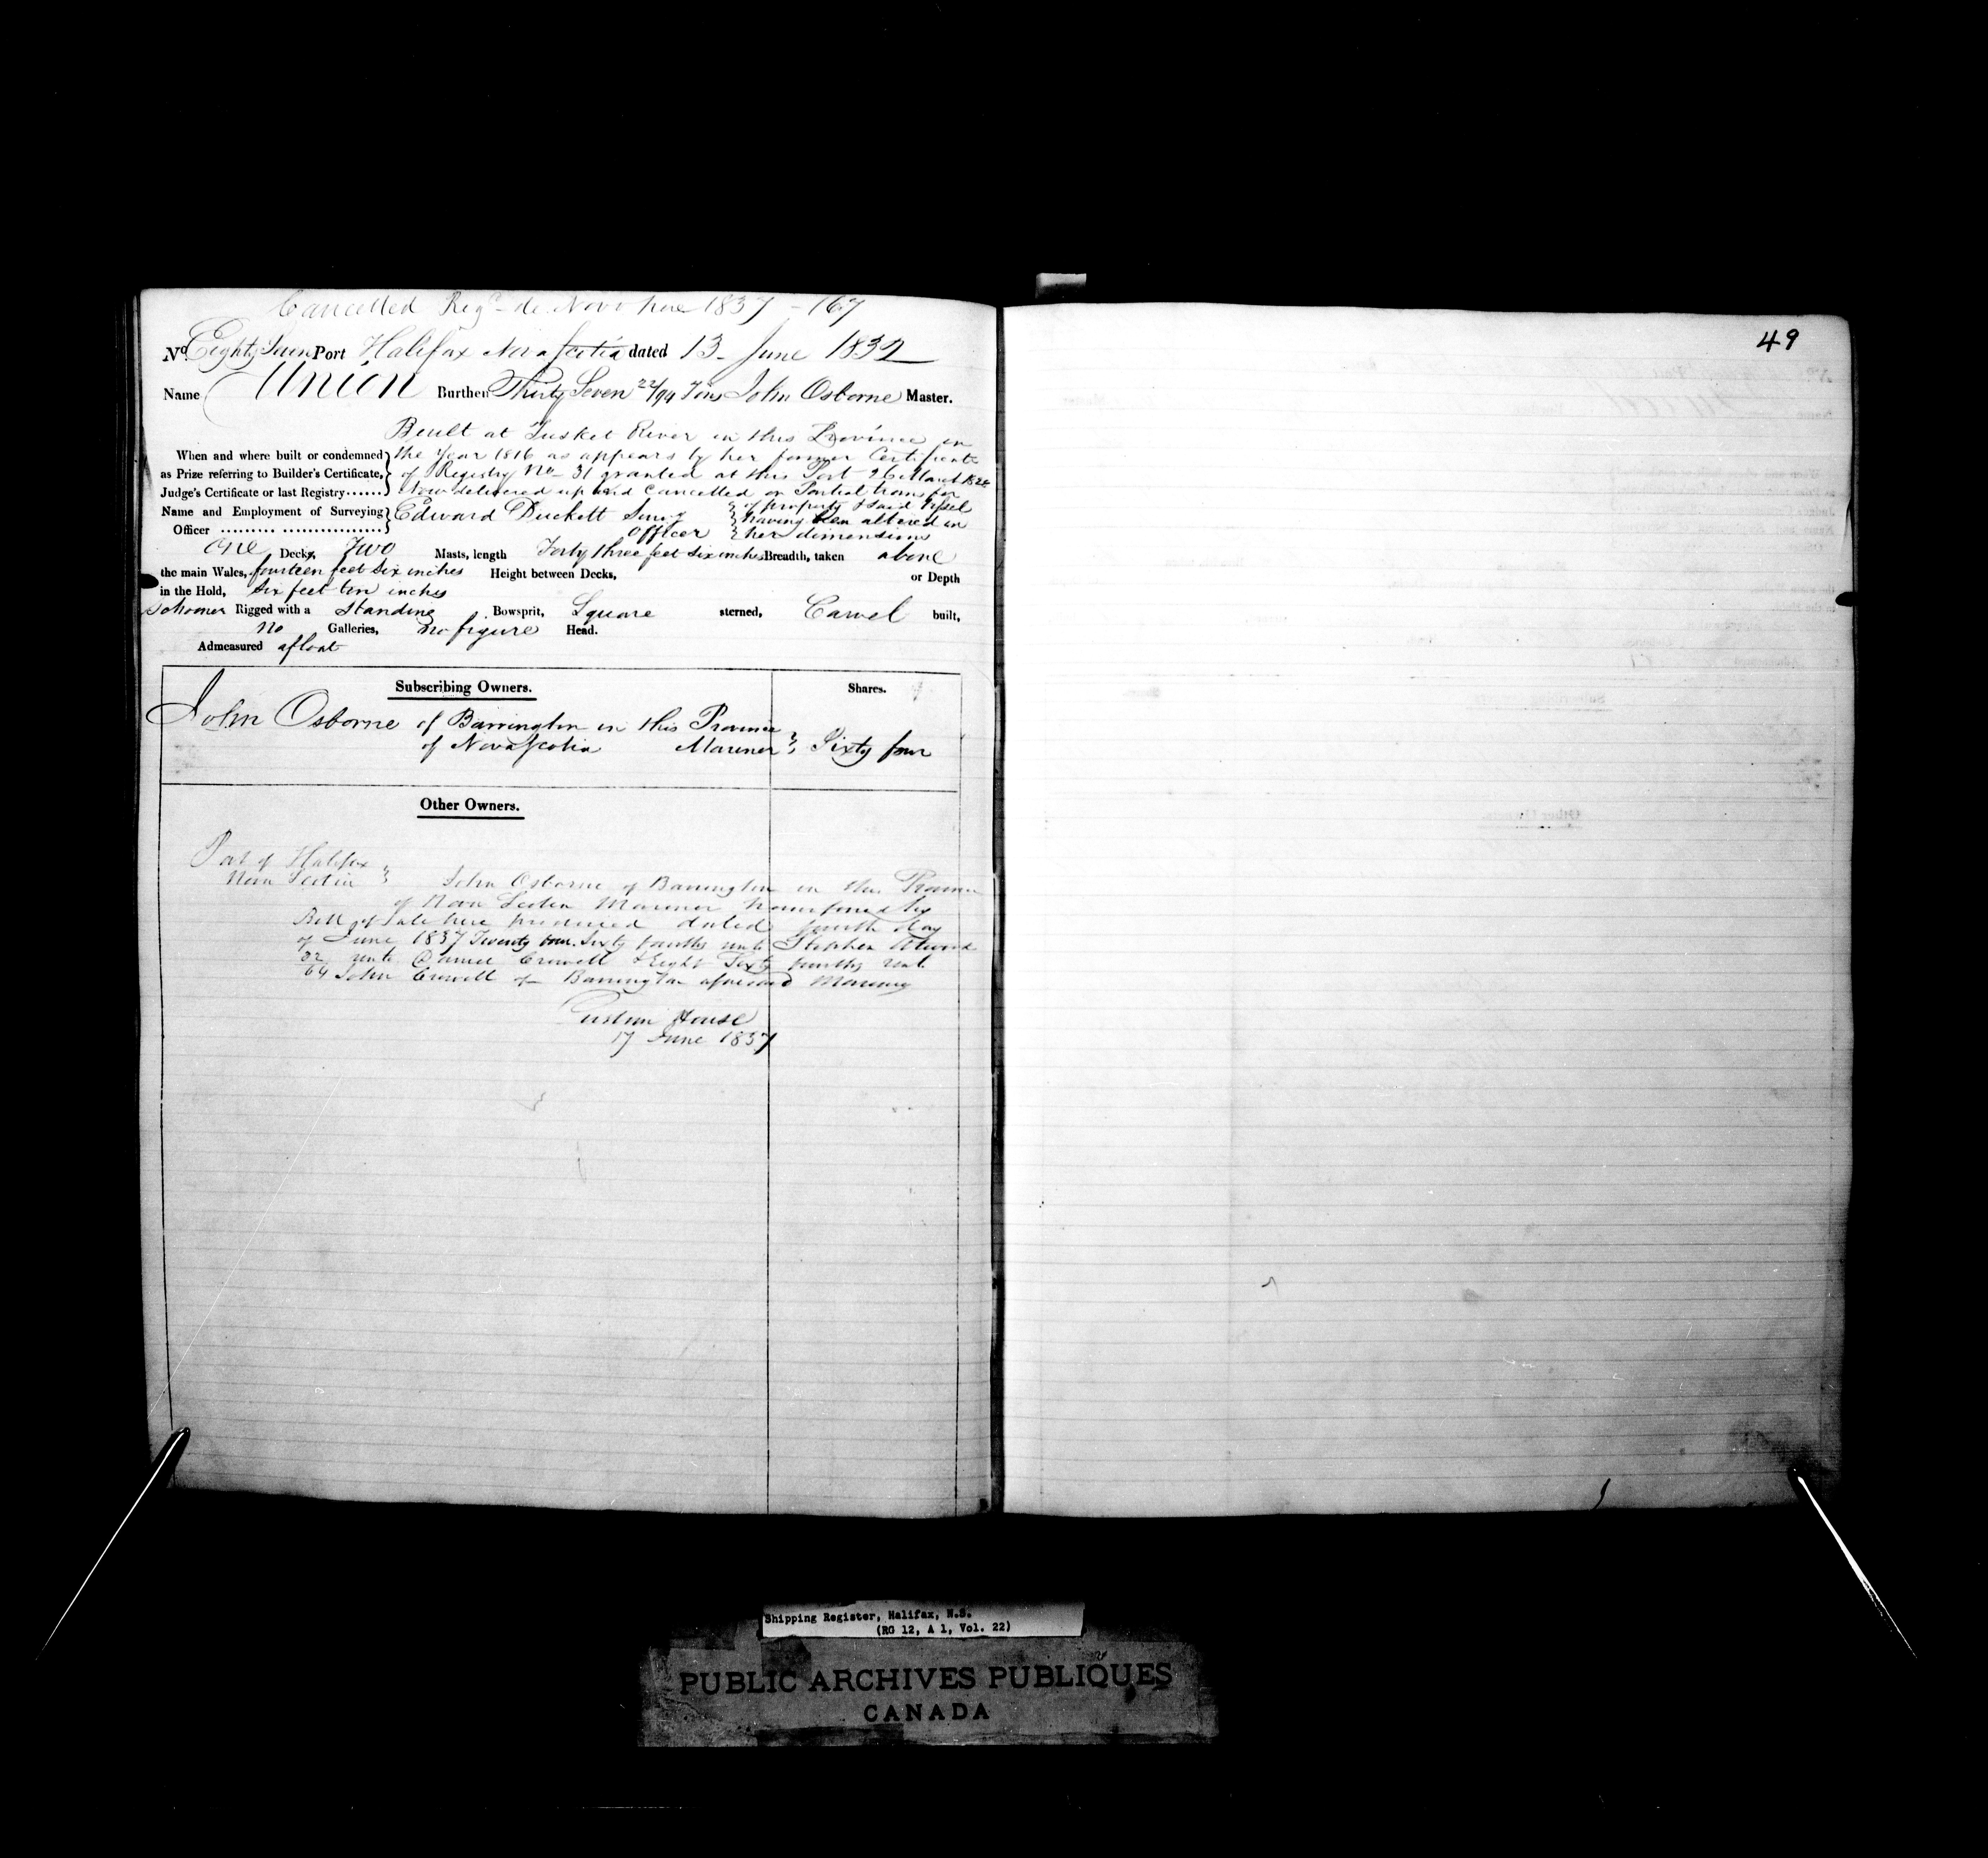 Cancelled Regd de Novo here 1837 - 167
49
No. Eighty Seven Port Halifax Nova Scotia dated 13 June 1832
Name Union Burthen Thirty Seven 22/94 Tons John Osborne Master.
Built at Tusket River in this Province in
When and where built or condemned the Year 1816 as appears by her former Certificate
as Prize referring to Builder's Certificate, of Registry No 31 granted at this Port 26 March
Judge's Certificate or last Registry...... Now delivered up and Cancelled on Partial transfer
Name and Employment of Surveying Edward Duckett Survg of property & said Vessel
having been altered in
Officer ......... ................ Officer her dimensions
One Decks, Two Masts, length Forty three feet six inches Breadth, taken above
the main Wales, fourteen feet six inches Height between Decks, or Depth
in the Hold, six feet ten inches
Schooner Rigged with a Standing Bowsprit, Square sterned, Carvel built,
no Galleries, no figure Head.
Admeasured afloat
Subscribing Owners. Shares.
John Osborne of Barrington in this Province
of Nova Scotia Mariner Sixty four
Other Owners.
Port of Halifax
Nova Scotia John Osborne of Barrington in this Province
of Nova Scotia Mariner transferred by
Bill of Sale here produced dated fourth day
of June 1837 Twenty four Sixty fourths unto Stephen Atwood
32 unto Daniel Crowell & Eight Sixty fourths unto
64 John Crowell of Barrington aforesaid
Custom House
17 June 1837
Shipping Register, Halifax, N.S.
(RG 12, A 1, Vol. 22)
PUBLIC ARCHIVES PUBLIQUES
CANADA